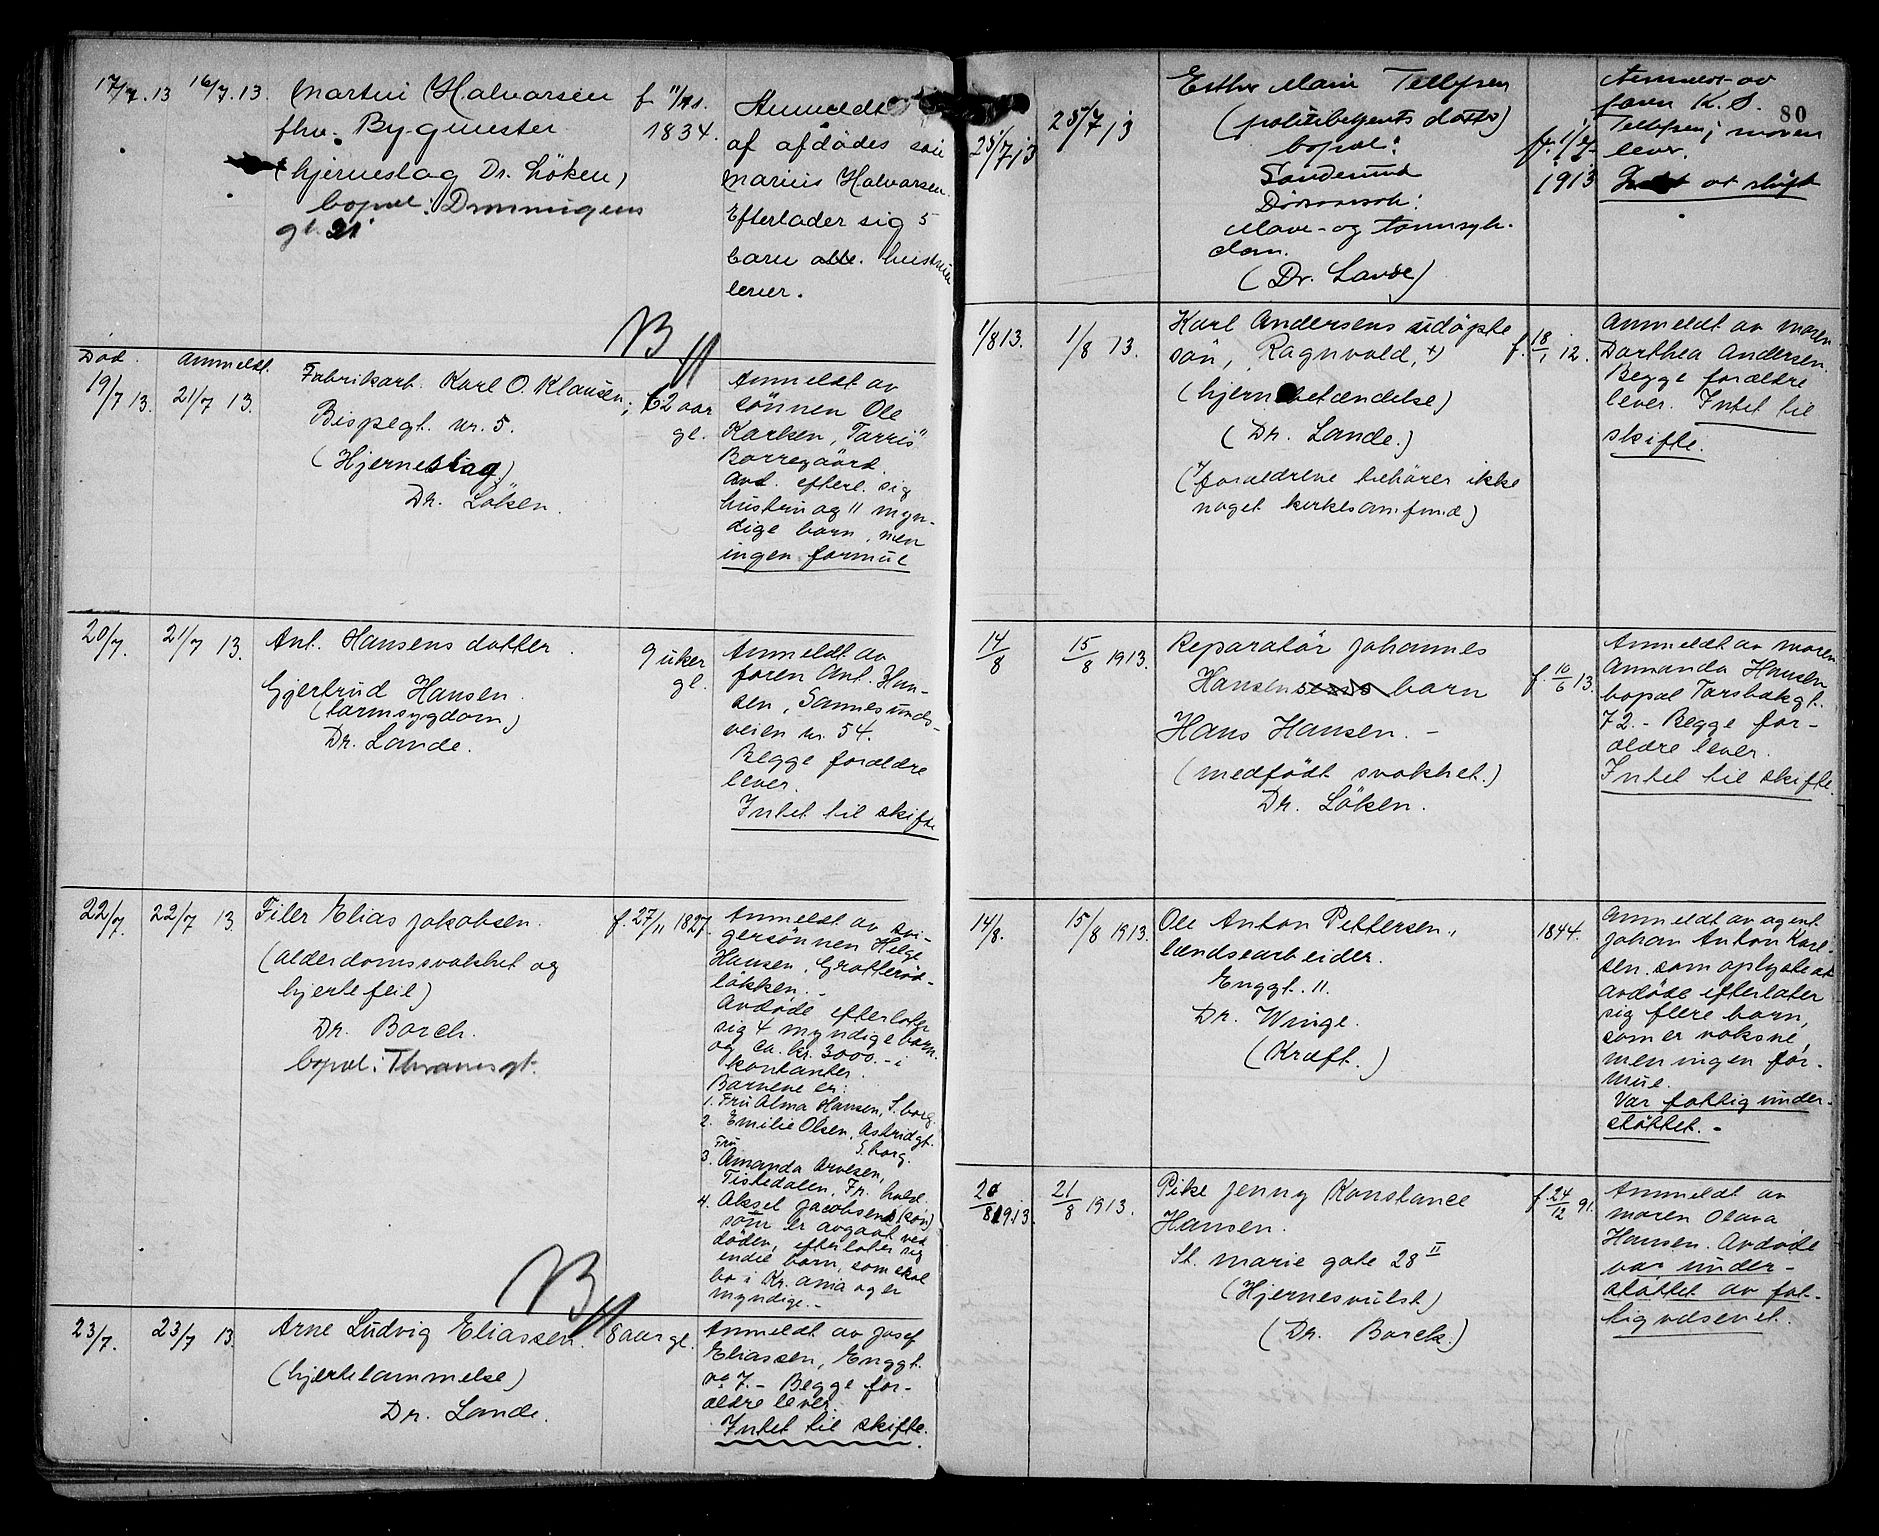 17/7.13 16/7.13. Martin Halvorsen f 11/11. Anmeldt
fhv. Bygmester 1834. af afdødes søn
(hjerneslag Dr. Löken) Marius Halvorsen.
bopæl: Dronningens Efterlader sig 5
gt. 21 barn alle. hustruen
lever.
B
Død. anmeldt.
19/7 13. 21/7 13. Fabrikarb. Karl O. Klausen; 62 aar gl.
Bispegt. nr. 5.
(Hjerneslag)
Dr. Löken.
Anmeldt av
sönnen Ole
Karlsen, "Tarris"
Borregaard.
Avd. efterl. sig
hustru og 11 myn-
dige barn, men
ingen formue
20/7. 21/7 13. Ant. Hansens datter 9 uker gl.
Gjertrud Hansen.
(tarmsygdom)
Dr. Lande.
Anmeldt av
faren Ant. Han-
sen, Sannesunds-
veien nr. 54.
Begge forældre
lever.
Intet til skifte
22/7. 22/7 13. Filer Elias Jakobsen. f. 27/11 1827.
(alderdomssvakhet og
hjertefeil)
Dr. Borch.
bopæl: Thranesgt.
Anmeldt av svi-
gersönnen Helge
Hansen, Grotterød-
løkken.
Avdøde efterlater
sig 4 myndige barn
og ca. kr. 3000.- i
kontanter.
Barnene er:
1. Fru Alma Hansen, S.borg.
2. Fru Emilie Olsen, Astridgt.
S.borg.
3. Amanda Arvesen,
Tistedalen, Fr. hald.
4. Aksel Jacobsen (søn)
som er avgaat ved
døden, efterlater sig
endel barn, som skal
bo i Kr.ania og er
myndige.-
B
23/7. 23/7 13. Arne Ludvig Eliassen. 8 aar gl.
(hjertelammelse)
Dr. Lande.
Anmeldt av Josef
Eliassen, Enggt.
no 7.- Begge for-
ældre lever.
Intet til skifte.
80
25/7 13 25/7 13 Esther Marie Tellefsen
(politibetjents datter)
bopæl:
Sandesund
Dørsaarsak:
Mave- og tarmsyk-
dom.
(Dr. Lande)
f. 1/2- 1913
Anmeldt av
faren K. S.
Tellefsen; moren
lever.
Intet at skifte
1/8 13. 1/8 13. Karl Andersens udöpte
sön, Ragnvald, +) f. 18/1 12.
(hjernebetændelse)
(Dr. Lande.)
(+/ forældrene tilhører ikke
noget kirkesamfund)
Anmeldt av moren
Dorthea Andersen.
Begge forældre
lever. Intet til
skifte.
14/8 15/8 1913. Reparatör Johannes
Hansens barn f. 10/6 13.
Hans Hansen. -
(medfödt svakhet.)
Dr. Löken.
Anmeldt av moren
Amanda Hansen
bopæl Torsbækgt.
72.- Begge for-
ældre lever.
Intet til skifte.
14/8. 15/8 1913. Ole Anton Pettersen, 1844.
lændsearbeider.
Enggt. 11.
Dr. Winge.
(Kræft.)
Anmeldt av agent
Johan Anton Karl-
sen. som oplyste at
avdøde efterlater
sig flere barn,
som er voksne,
men ingen for-
mue.
Var fattigunder-
støttet.-
20/8 1913. 21/8 1913. Pike Jenny Konstance f. 24/12 91.
Hansen.
St. Marie gate 28 II
(Hjernesvulst)
(Dr. Borch.)
Anmeldt av
moren Olava
Hansen. Avdøde
var under-
støttet av fat-
tigvæsenet.